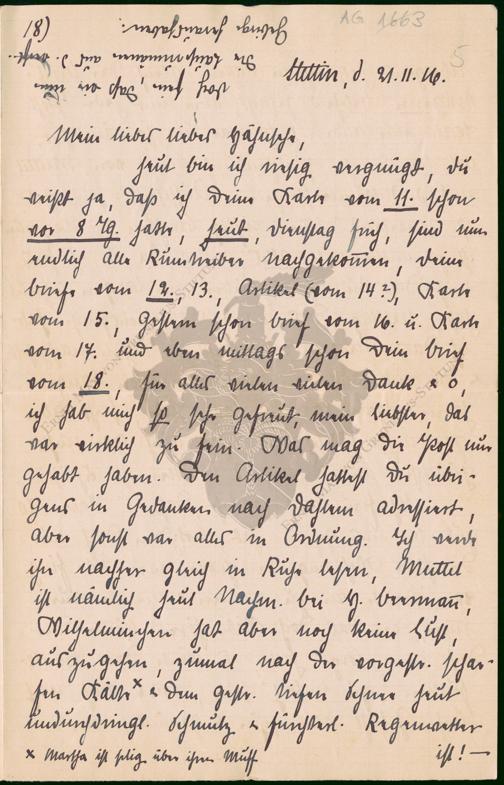 18)
AG 1663
5
Stettin, d. 21.11.16.
Mein liebes liebes Hähnsche,
heut bin ich riesig vergnügt, du
weißt ja, daß ich Deine Karte vom 11. schon
vor 8 Tg. hatte, heut, Dienstag früh, sind nun
endlich alle Rumtreiber nachgekommen, Deine
Briefe vom 12., 13., Artikel (vom 14?), Karte
vom 15., gestern schon Brief vom 16. u. Karte
vom 17. und eben mittags schon Dein Brief
vom 18., für alles vielen vielen Dank & o,
ich hab mich so sehr gefreut, mein Liebster, das
war wirklich zu fein. Was mag die Post nur
gehabt haben. Den Artikel hattest Du übri-
gens in Gedanken nach Dahlem adressiert,
aber sonst war alles in Ordnung. Ich werde
ihn nachher gleich in Ruhe lesen, Muttel
ist nämlich heut Nachm. bei
Wilhelminchen hat aber noch keine Lust,
auszugehen, zumal nach der vorgestr. schar-
fen Kälte x & dem gestr. tiefen Schnee heut
undurchdringl. Schmutz & fürchterl. Regenwetter
ist! —
x Martha ist selig über ihren Muff